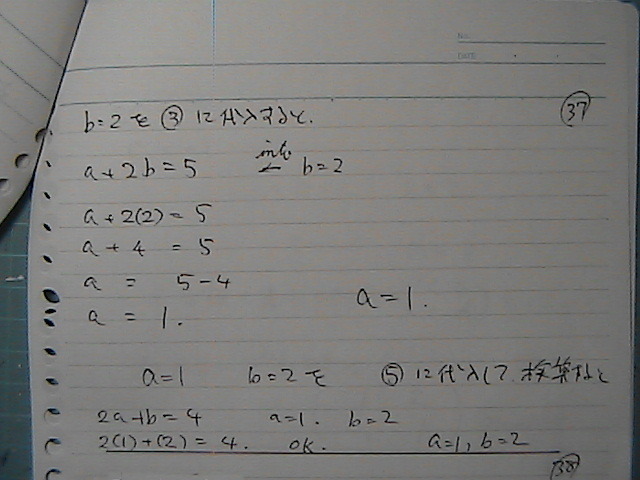 No.
DATE
㊲
b=2を ③ に代入すると、
a+2b=5 into ← b=2
a+2(2)=5
a+4 = 5
a = 5-4
a = 1. a=1.
a=1 b=2を ⑤に代入して、検算すると
2a+b=4 a=1. b=2
2(1)+(2)=4. OK. a=1, b=2
㊳